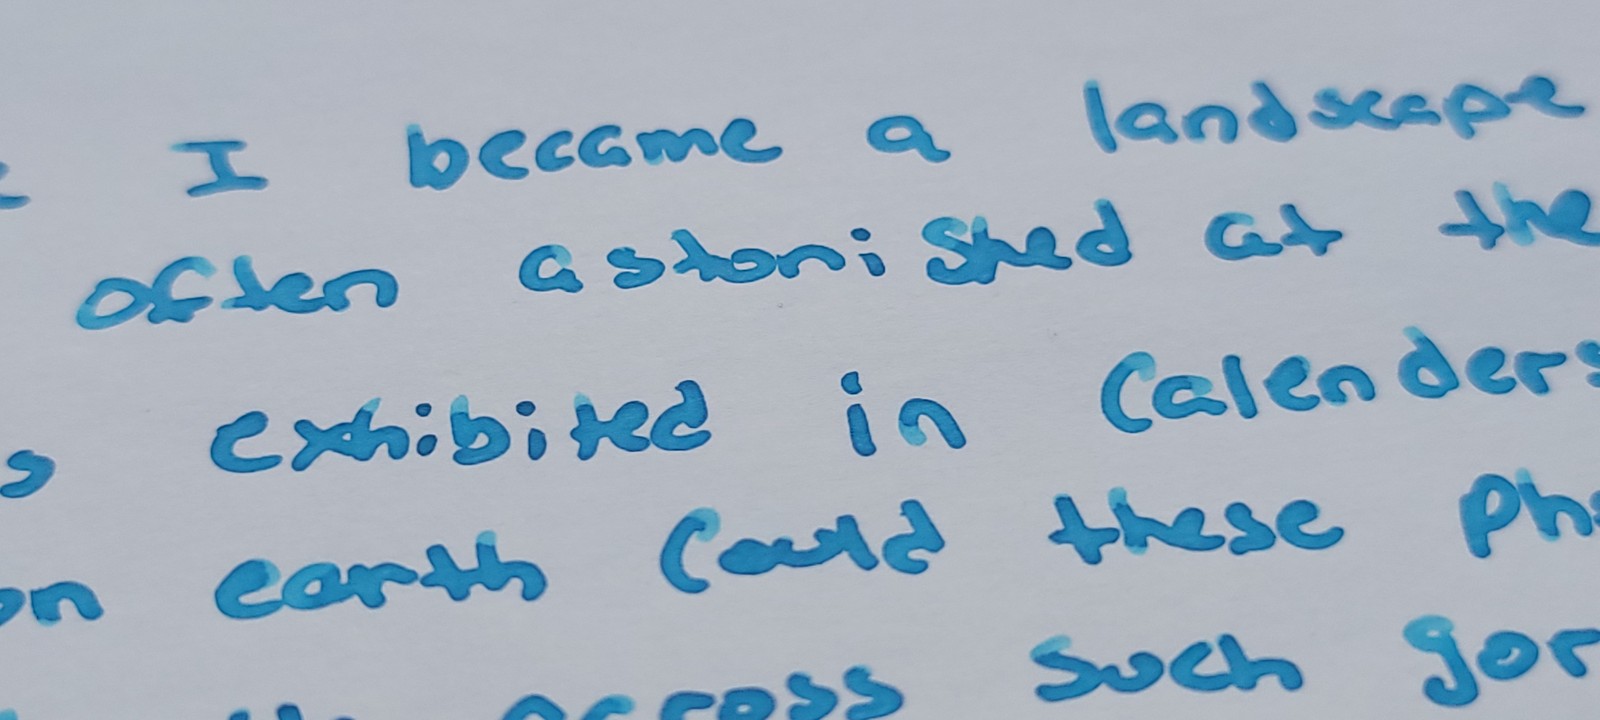 I became a landscape
often astonished at the
s exhibited in Calenders
on earth Could these Pho
across such gor